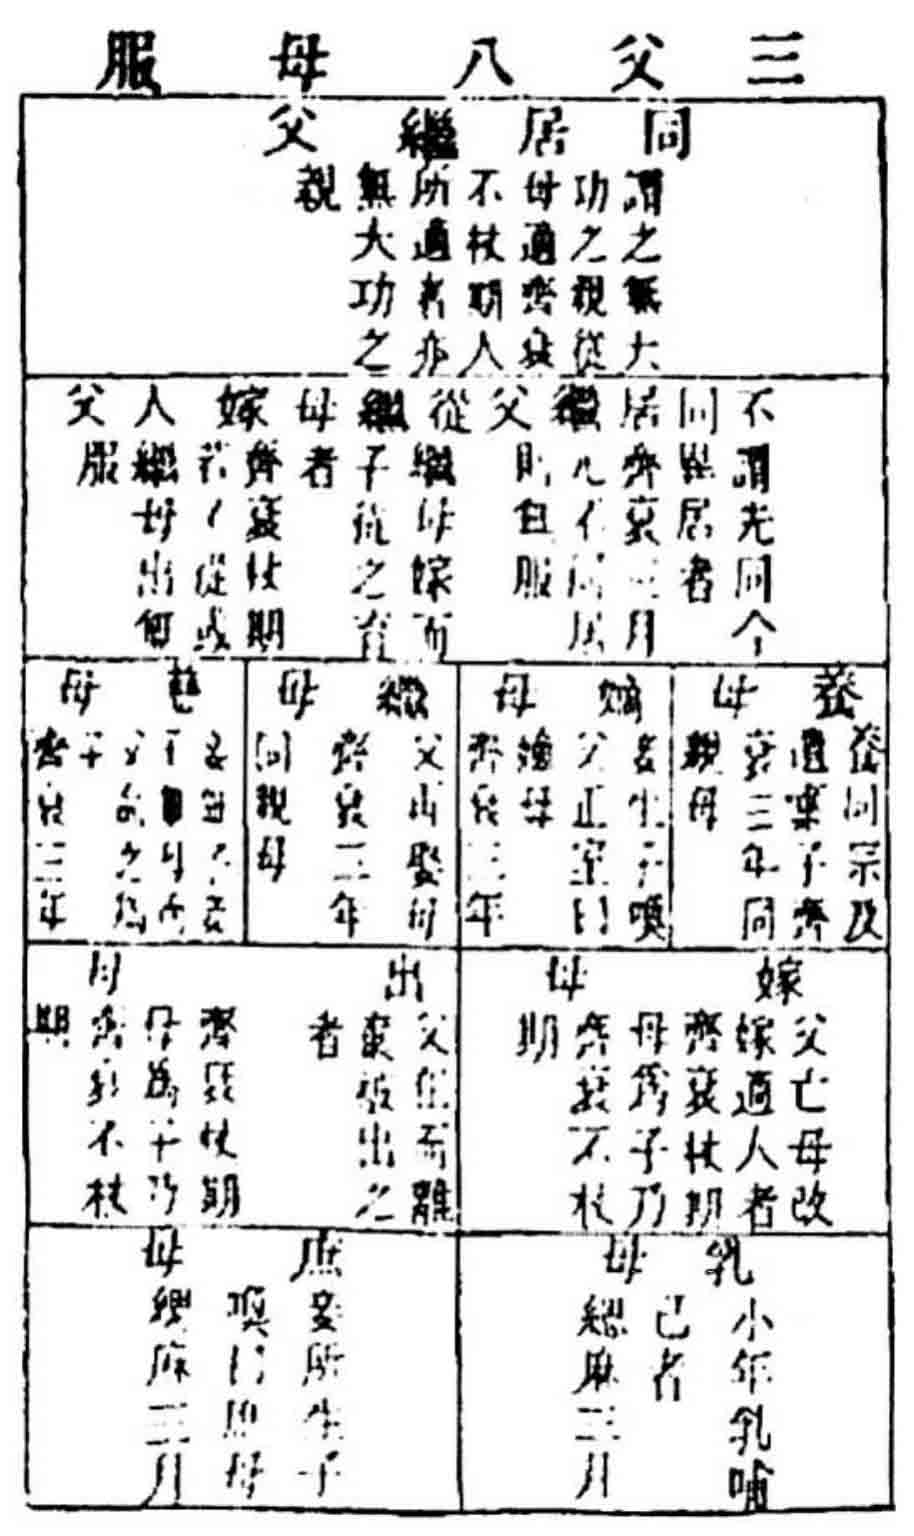 三父八母服
同居繼父
謂之無大
功之親從
母適齊衰
不杖期人
所適者亦
無大功之
親
不同居繼父
謂先同今
異居者
齊衰三月
元不同居
則無服
從繼母嫁
繼母嫁而
子從之者
齊衰杖期
若不從或
繼母出
人父服
養母
養同宗及
遺棄子齊
衰三年同
親母
嫡母
妾生子喚
父正室曰
嫡母
齊衰三年
繼母
父再娶母
齊衰三年
同親母
慈母
齊衰三年
嫁母
父亡母改
嫁適人者
齊衰杖期
母爲子乃
齊衰不杖
期
出母
父在而離
棄被出之
者
齊衰杖期
母爲子乃
齊衰不杖
期
乳母
小年乳哺
己者
緦麻三月
庶母
妾所生子
喚曰庶母
緦麻三月